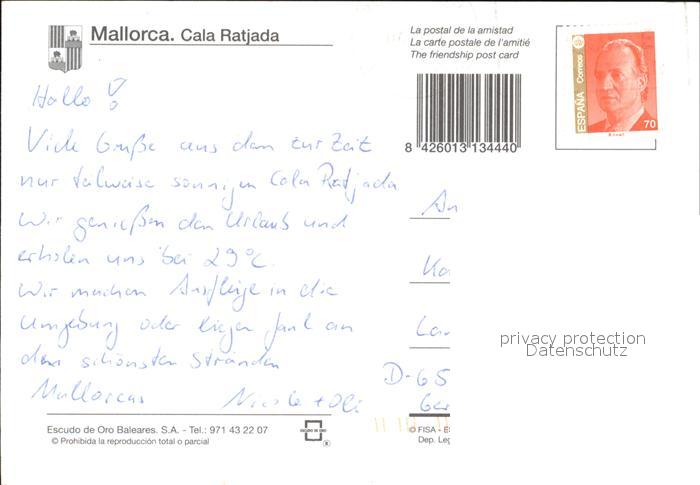 Mallorca. Cala Ratjada
La postal de la amistad
La carte postale de l'amitié
The friendship post card
8 426013 134440
ESPAÑA Correos
70
Hallo!
Viele Grüße aus dem zur Zeit
nur teilweise sonnigen Cala Ratjada
Wir genießen den Urlaub und
erholen uns bei 29°C.
Wir machen Ausflüge in die
Umgebung oder liegen faul an
den schönsten Stränden
Mallorcas Nicole + Oli
An
Ka
Lar
D-65
Ger
privacy protection
Datenschutz
Escudo de Oro Baleares. S.A. - Tel.: 971 43 22 07
© Prohibida la reproducción total o parcial
ESCUDO DE ORO
®
© FISA - ES
Dep. Leg